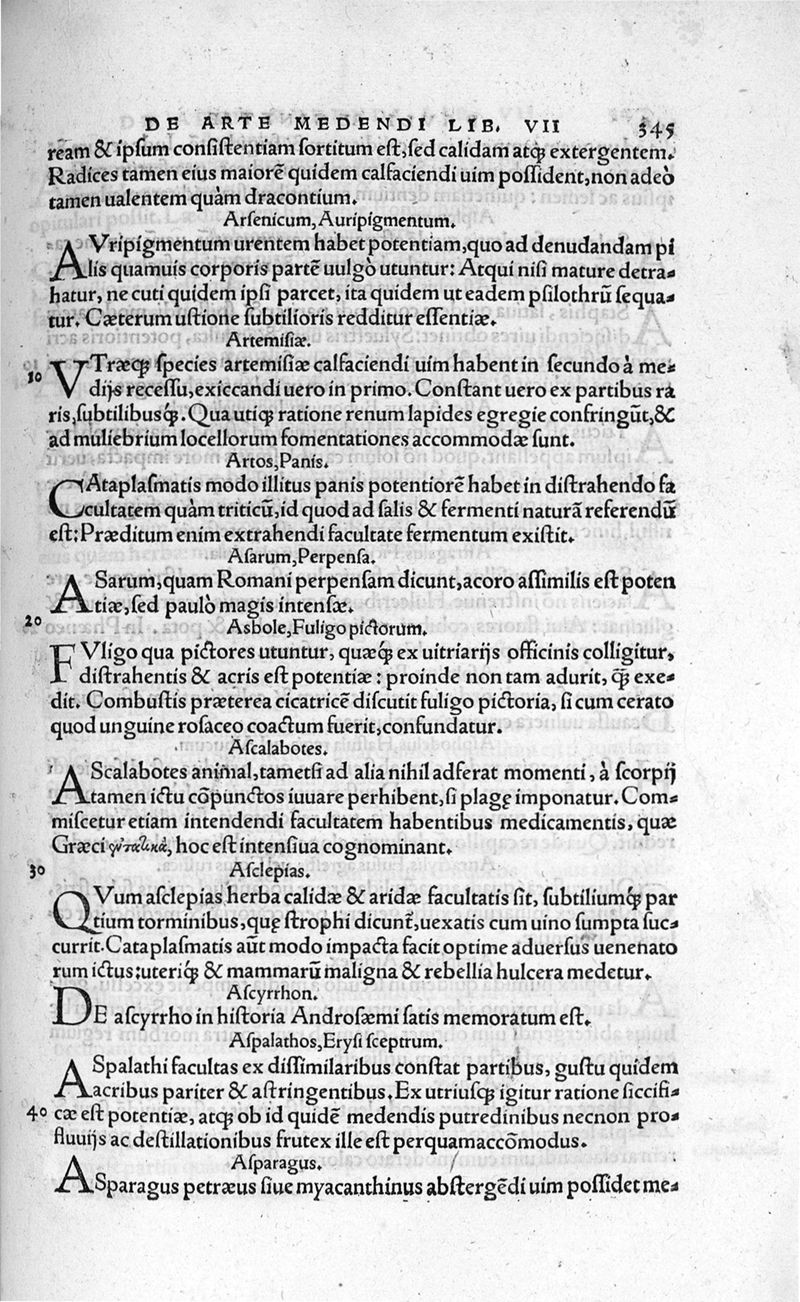 DE ARTE MEDENDI LIB. VII 345
ream & ipſum conſiſtentiam ſortitum eſt, ſed calidam atq̃ extergentem.
Radices tamen eius maiorē quidem calfaciendi uim poſſident, non adeò
tamen ualentem quàm dracontium.
Arſenicum, Auripigmentum.
AVripigmentum urentem habet potentiam, quo ad denudandam pi
lis quamuis corporis partē uulgò utuntur: Atqui niſi mature detra-
hatur, ne cuti quidem ipſi parcet, ita quidem ut eadem pſilothrū ſequa-
tur. Cæterum uſtione ſubtilioris redditur eſſentiæ.
Artemiſiæ.
VTræq̃ ſpecies artemiſiæ calfaciendi uim habent in ſecundo à me-
10 dijs receſſu, exiccandi uero in primo. Conſtant uero ex partibus ra
ris, ſubtilibusq̃. Qua utiq̃ ratione renum lapides egregie confringūt, &
ad muliebrium locellorum fomentationes accommodæ ſunt.
Artos, Panis.
CAtaplaſmatis modo illitus panis potentiorē habet in diſtrahendo fa
cultatem quàm triticū, id quod ad ſalis & fermenti naturā referendū
eſt: Præditum enim extrahendi facultate fermentum exiſtit.
Aſarum, Perpenſa.
ASarum, quam Romani perpenſam dicunt, acoro aſſimilis eſt poten
tiæ, ſed paulò magis intenſæ.
20 Asbole, Fuligo pictorum.
FVligo qua pictores utuntur, quæq̃ ex uitriarijs officinis colligitur,
diſtrahentis & acris eſt potentiæ: proinde non tam adurit, q̃ exe-
dit. Combuſtis præterea cicatricē diſcutit fuligo pictoria, ſi cum cerato
quod unguine roſaceo coactum fuerit, confundatur.
Aſcalabotes.
AScalabotes animal, tametſi ad alia nihil adferat momenti, à ſcorpij
tamen ictu cōpunctos iuuare perhibent, ſi plagę imponatur. Com-
miſcetur etiam intendendi facultatem habentibus medicamentis, quæ
Græci ἐντατικὰ, hoc eſt intenſiua cognominant.
30 Aſclepias.
QVum aſclepias herba calidæ & aridæ facultatis ſit, ſubtiliumq̃ par
tium torminibus, quę ſtrophi dicunt̃, uexatis cum uino ſumpta ſuc-
currit. Cataplaſmatis aūt modo impacta facit optime aduerſus uenenato
rum ictus: uteriq̃ & mammarū maligna & rebellia hulcera medetur.
Aſcyrrhon.
DE aſcyrrho in hiſtoria Androſæmi ſatis memoratum eſt.
Aſpalathos, Eryſi ſceptrum.
ASpalathi facultas ex diſſimilaribus conſtat partibus, guſtu quidem
acribus pariter & aſtringentibus. Ex utriuſq̃ igitur ratione ſiccifi-
40 cæ eſt potentiæ, atq̃ ob id quidē medendis putredinibus necnon pro-
fluuijs ac deſtillationibus frutex ille eſt perquam accōmodus.
Aſparagus.
ASparagus petræus ſiue myacanthinus abſtergēdi uim poſſidet me-